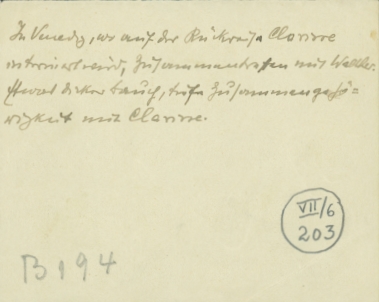 In Venedig, wo auf der Rückreise Clarisse
interniert wird, Zusammentreffen mit Walter.
Etwas dicker Bauch, tiefe Zusammengehö-
rigkeit mit Clarisse.
VII/6
203
B 194